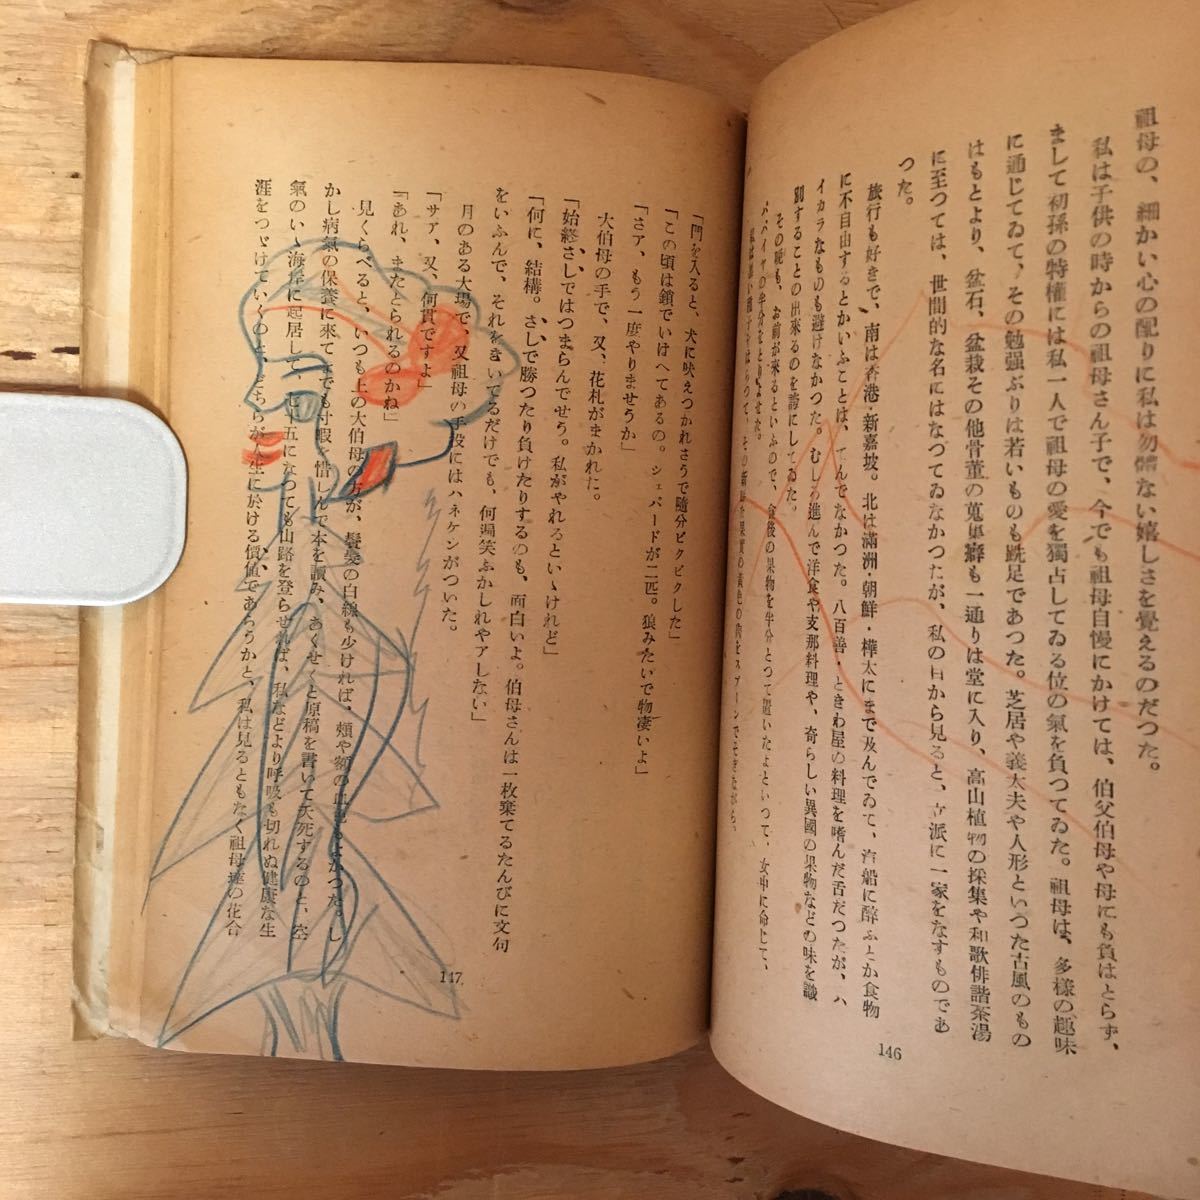 祖母の、細かい心の配りに私は勿體ない嬉しさを覚えるのだつた。
私は子供の時からの祖母さん子で、今でも祖母自慢にかけては、伯父伯母や母にも負はとらず、
まして初孫の特權には私一人で祖母の愛を獨占してゐる位の氣を負つてゐた。祖母は、多樣の趣味
に通じてゐて、その勉强ぶりは若いものも跣足であつた。芝居や義太夫や人形といつた古風のもの
はもとより、盆石、盆栽その他骨董の蒐集癖も一通りは堂に入り、高山植物の採集や和歌俳諧茶湯
に至つては、世間的な名にはなつてゐなかつたが、私の目から見ると、立派に一家をなすものであ
つた。
旅行も好きで、南は香港・新嘉坡。北は滿洲・朝鮮・樺太にまで及んでゐて、汽船に醉ふとか食物
に不自由するとかいふことは、てんでなかつた。八百善・ときわ屋の料理を嗜んだ舌だつたが、ハ
イカラなものも避けなかつた。むしろ進んで洋食や支那料理や、奇らしい異國の果物などの味を識
別することの出來るのを誇にしてゐた。
その晩も、お前が來るといふので、食後の果物を半分とつて置いたよといつて、女中に命じて、
パパイヤの半分をとりよせた。
をスプーンでそぎながら、
146
「門を入ると、犬に吠えつかれさうで隨分ビクビクした」
「この頃は鎖でいはへてあるの。シェパードが二匹。狼みたいで物凄いよ」
「さア、もう一度やりませうか」
大伯母の手で、又、花札がまかれた。
「始終さしではつまらんでせう。私がやれるといゝけれど」
「何に、結構。さしで勝つたり負けたりするのも、面白いよ。伯母さんは一枚棄てるたんびに文句
をいふんで、それをきいてるだけでも、何漏笑ふかしれやアしない」
月のある大場で、又祖母の手役にはハネケンがついた。
「サア、又、何貫ですよ」
「あれ、またとられるのかね」
見くらべると、いつも上の大伯母の方が、鬢髪の白線も少ければ、頰や額の血色もよかつた。し
かし病氣の保養に來てまでも寸暇を惜しんで本を讀み、あくせくと原稿を書いて夭死するのと、空
氣のいゝ海岸に起居して、七十五になつても山路を登らせれば、私などより呼吸も切れぬ健康な生
涯をつゞけていくのと、どちらが人生に於ける價値であらうかと、私は見るともなく祖母達の花合
147